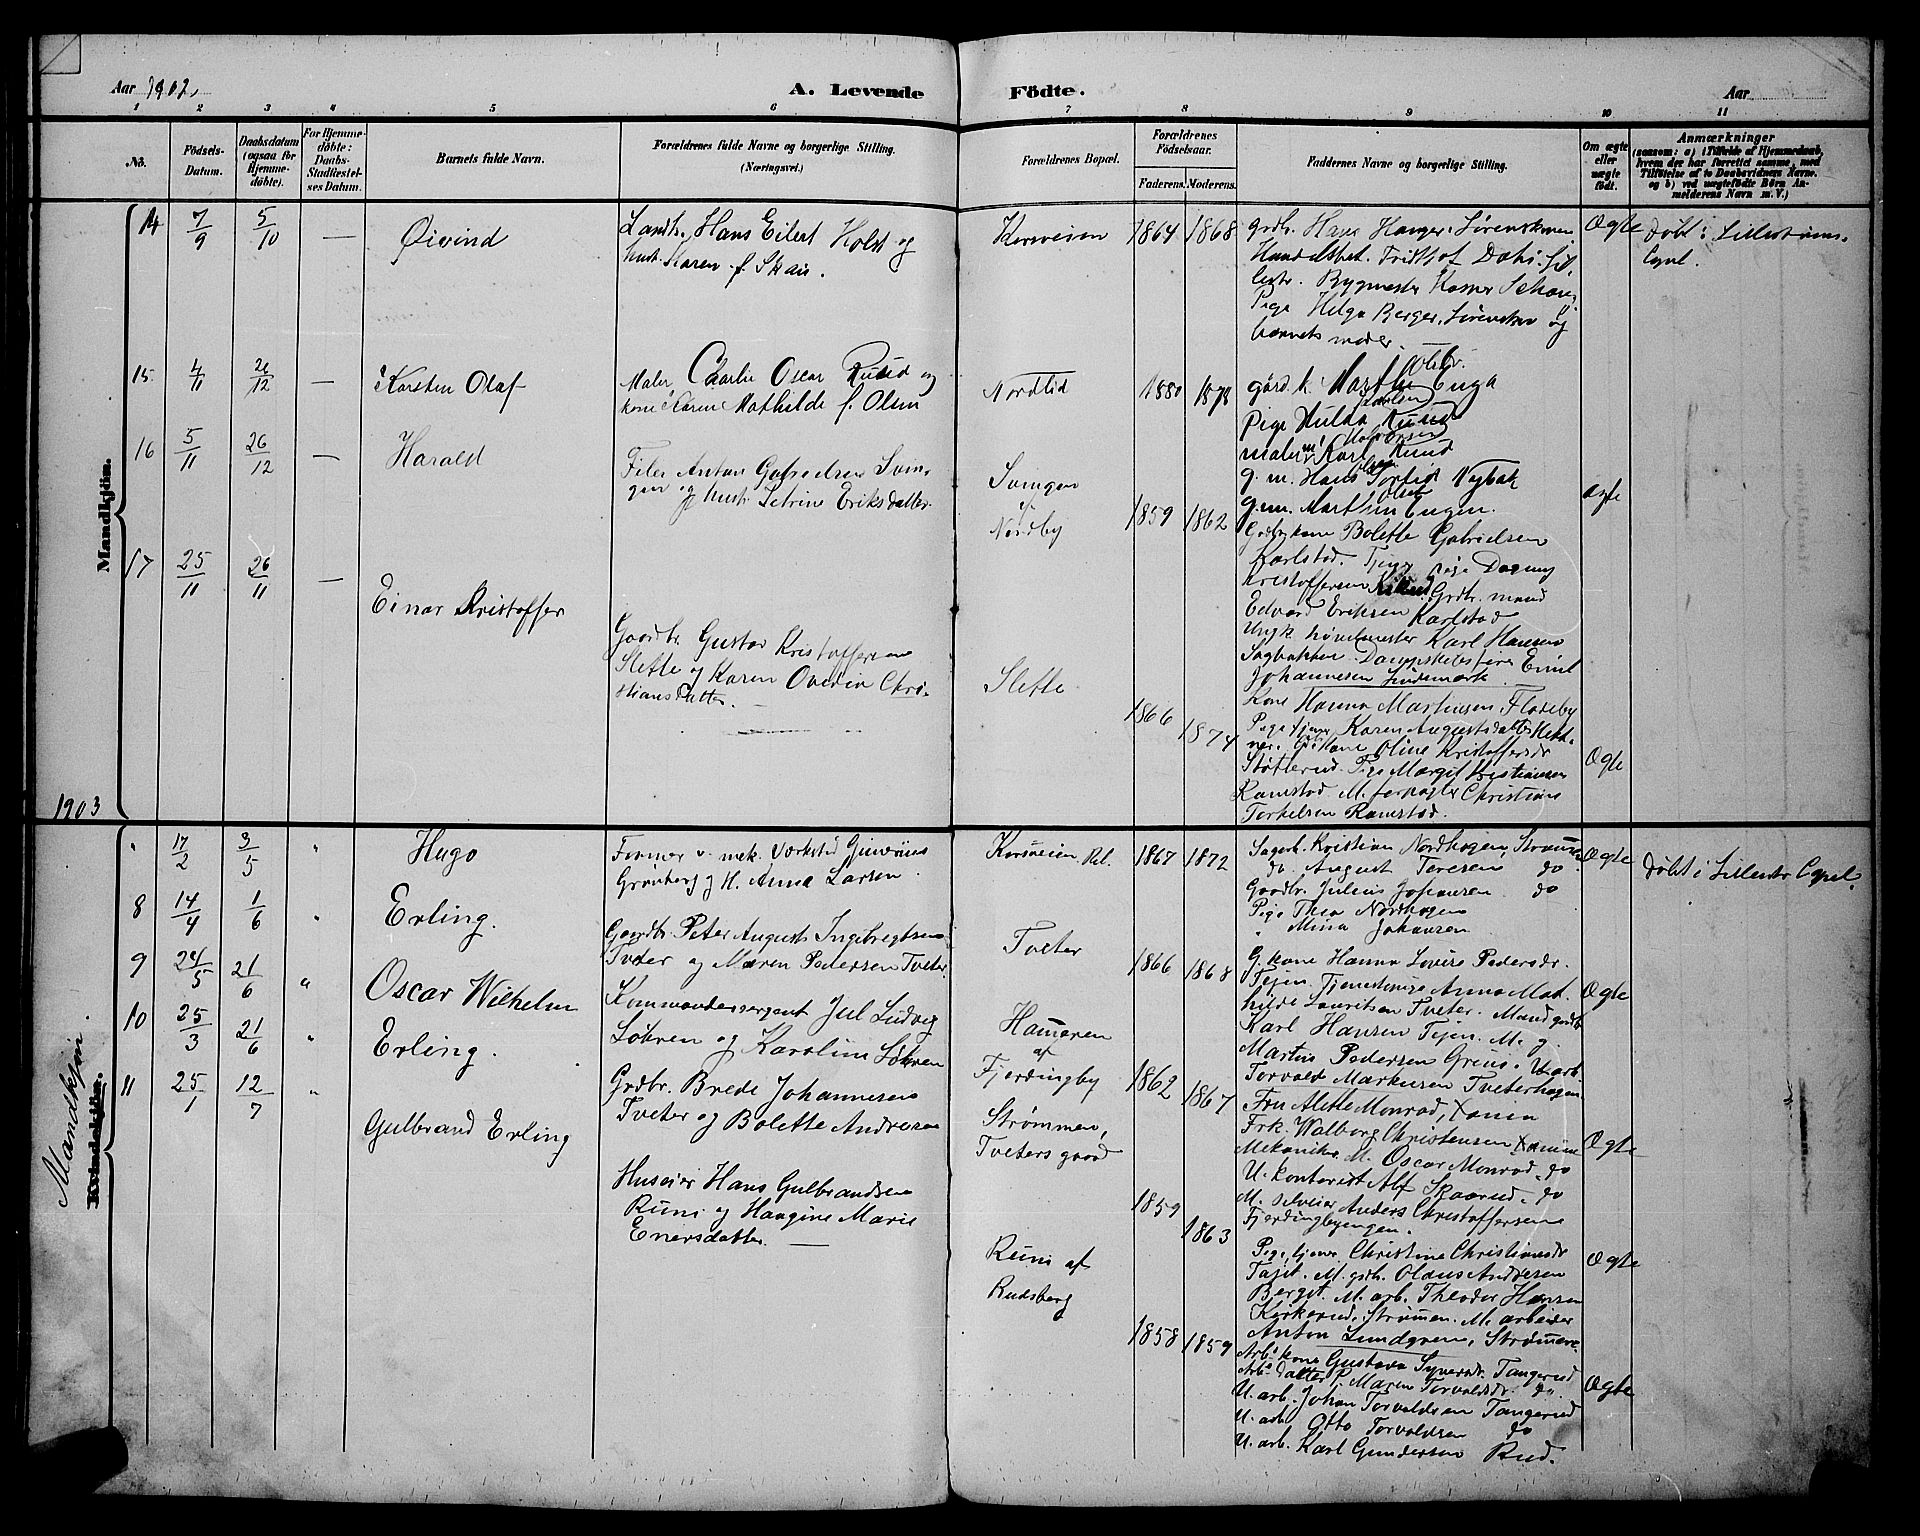 Aar 1902.
A. Levende Födte.
Aar
1 2 3 4 5 6 7 8 9 10 11
No.
Födsels-Datum.
Daabsdatum (ogsaa for Hjemmedöbte).
For Hjemmedöbte: Daabs-Stadfæstelses Datum.
Barnets fulde Navn.
Forældrenes fulde Navne og borgerlige Stilling. (Næringsvei.)
Forældrenes Bopæl.
Forældrenes Födselsaar.
Faderens. Moderens.
Faddernes Navne og borgerlige Stilling.
Om ægte eller uægte födt.
Anmærkninger
(saasom: a) i Tilfælde af Hjemmedaab, hvem der har forrettet samme, med Tilföielse af to Daabsvidners Navne. og b) ved uægtefödte Börn Anmelderens Navn m. V.)
Mandkjön.
14 7/9 5/10 — Øivind
Landh. Hans Eilert Holst og
hust. Karen f. Skais.
Korsveien 1864 1868
grdbr. Hans Hanger,
Handelsbet. Fridthjof Dahl
Bygmester
Pige Helga Berger, og
barnets moder.
Ægte
Døbt i Lillestrøms
Capel.
15 4/11 26/12 — Karsten Olaf
Maler Charlie Oscar Ruud og
kone Karen Mathilde f. Olsen
Nordlid 1880 1878
gård.k. Marthe Enga
Pige Hulda Ruud
maler Karl Ruud
g.m. Hans Nybak
g.m. Martin Engen.
16 5/11 26/12 — Harald
Filer Anton Gabrielsen Svingen
og hust. Petrine Eriksdatter.
Svingen
af
Nordby
1859 1862 ægte
Grdbr.kone Bolette Gabrielsen
Karlstad. Tjen. pige Dagny
Kristoffersen Grdbr. mand
Edvard Eriksen Karlstad
Ungk. høvlmester Karl Hansen
Sagbakken. Emil
Johannesen Lindemark.
17 25/11 26/11 — Einar Kristoffer
Gaardbr. Gustav Kristoffersen
Slette og Karen Ovedia Christiansdatter. —
Slette 1866 1874
Kone Hanna Martinsen, Flateby
Pige tjener Karen Augustsdatter
kone Oline Kristoffersdr
Støtterud. Pige Margit Kristiansen
Ramstad M. forpagter Christian
Torkelsen Ramstad.
Ægte
1903
Mandkjön.
Kvindekjön.
" 17/2 3/5 " Hugo
Former v. mek. Værksted
Grønberg og H. Anna Larsen.
Korsveien, Rel. 1867 1872
Sagarb. Kristian Nordhagen, Strømmen
do. August Toresen do
Gaardbr. Julius Johansen. do
Pige Thea Nordhagen
" Mina Johansen
Ægte
Døbt i Lillestr. Capel.
8 14/4 1/6 " Erling.
Gaardbr. Peter August Ingebregtsen
Tveter og Maren Pedersen Tveter.
Tveter 1866 1868
G. kone Hanna Lovise Pedersdr.
Tejen. Tjenestepige Anna Mathilde
Lauritsen Tveter. Mand gaardbr.
Karl Hansen Tejen. M. g.
Martin Pedersen Grini. U. arb
Torvald Markusen Tveterhagen
Ægte
9 24/5 21/6 " Oscar Wilhelm
Kommandersergent Jul Ludvig
Løkren og Karoline Løkren
Hammeren
af
Fjerdingby
1862 1867
Fru Alette Monrad, Xania
Frk. Walborg Christensen Xania
Mekaniker M. Oscar Monrad, do
U. kontorist Alf Skaarud. do
M. selveier Anders Christoffersen
Fjerdingbyengen.
Ægte
10 25/3 21/6 " Erling.
Grdbr. Brede Johannesen
Tveter og Bolette Andresen
Strømmen,
Tvetersgaard
1859 1863
Pige tjener Christine Christiansdr
M. grdbr. Olaus Andresen
Berget. M. arb. Theodor Hansen
Kirkerud, Strømmen. M. arbeider
Anton Lundgren, Strømmen.
Ægte
11 25/1 12/7 " Gulbrand Erling
Huseier Hans Gulbrandsen
Runi og Haagine Marie
Enersdatter. —
Runi af
Rudsberg
1858 1859
Arb. kone Gustava Syversdr. Tangerud
Arb. datter P. Maren Torvaldsdr. do.
U. arb. Johan Torvaldsen Tangerud
U. arb Otto Torvaldsen do
U. arb. Karl Gundersen Rud.
Ægte